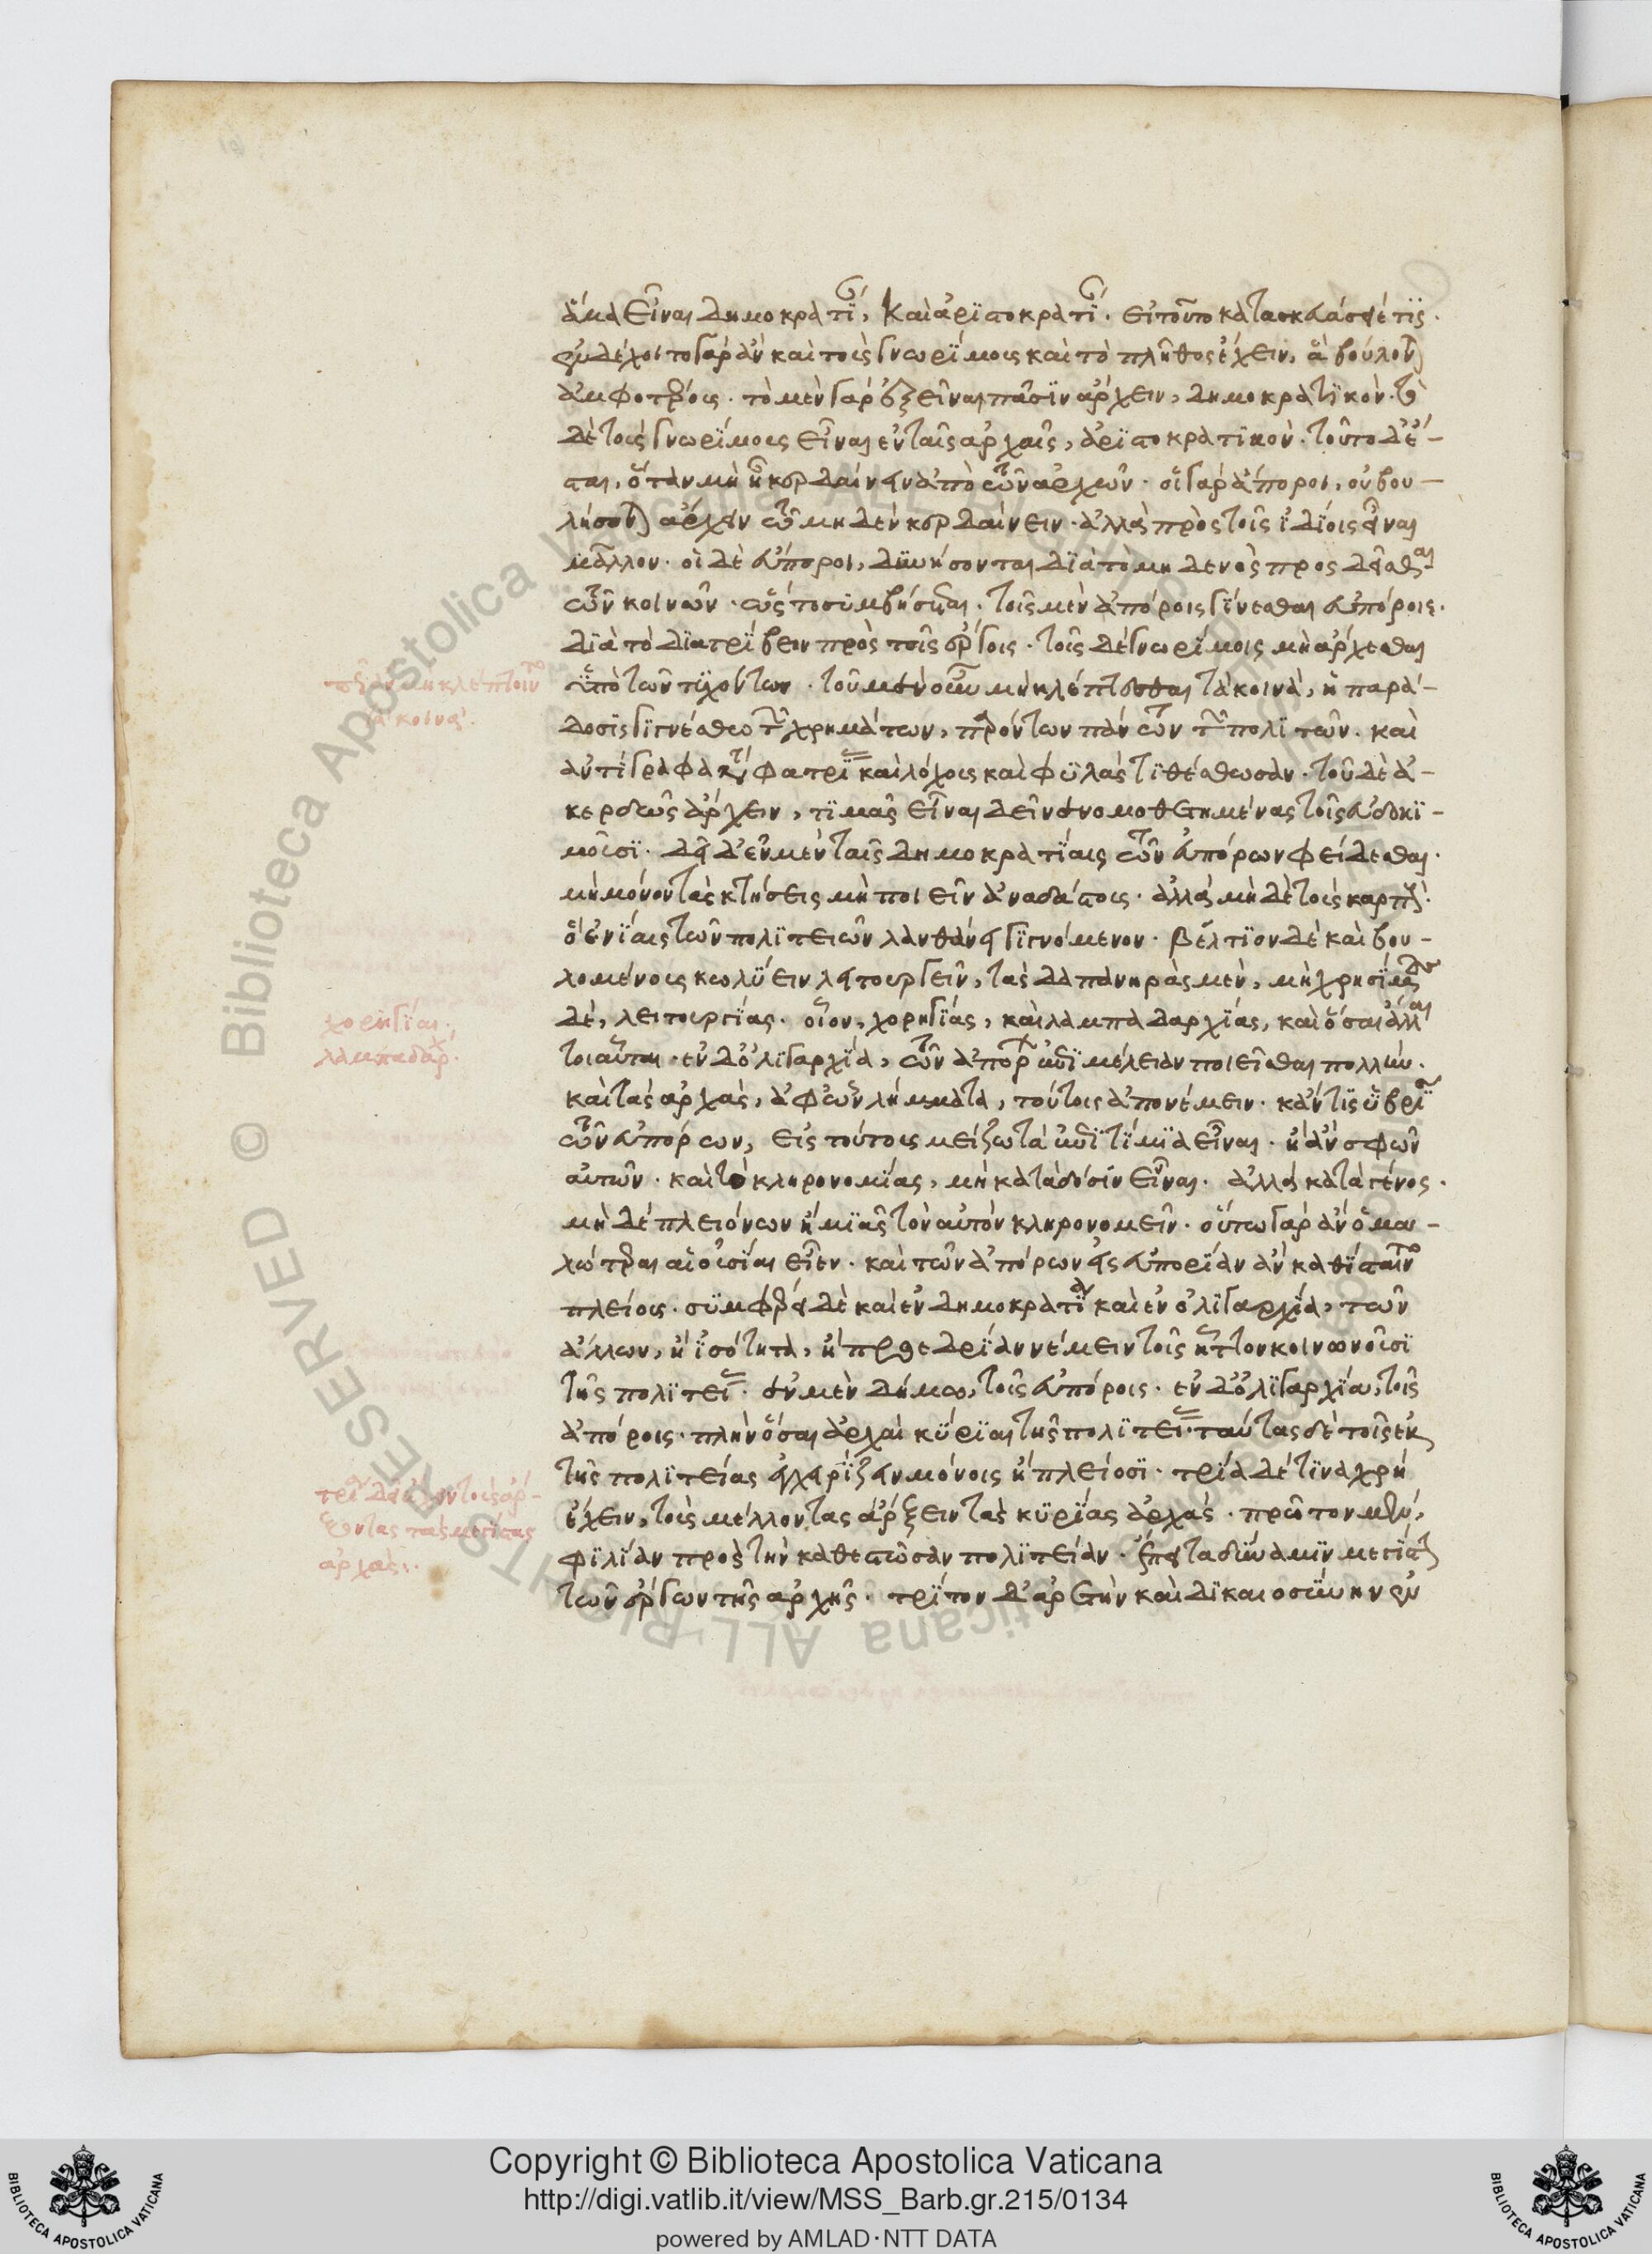 ἅμα εἶναι δημοκρατίαν, καὶ ἀριστοκρατίαν. εἰ τοῦτο κατασκευάσειέ τις.
ἐνδέχοιτο γὰρ ἂν καὶ τοὺς γνωρίμους καὶ τὸ πλῆθος ἔχειν, ἃ βούλονται
ἀμφοτέρους. τὸ μὲν γὰρ ἐξεῖναι πᾶσιν ἄρχειν, δημοκρατικόν. τὸ
δὲ τοὺς γνωρίμους εἶναι ἐν ταῖς ἀρχαῖς, ἀριστοκρατικόν. τοῦτο δ' ἔ-
σται, ὅταν μὴ ᾖ κερδαίνειν ἀπὸ τῶν ἀρχῶν. οἱ γὰρ ἄποροι, οὐ βου-
λήσονται ἄρχειν τῷ μηδὲν κερδαίνειν. ἀλλὰ πρὸς τοῖς ἰδίοις εἶναι
μᾶλλον. οἱ δὲ εὔποροι, δυνήσονται διὰ τὸ μηδενὸς προσδεῖσθαι
τῶν κοινῶν. ὥστε συμβήσεται. τοῖς μὲν ἀπόροις γίνεσθαι εὐπόροις.
διὰ τὸ διατρίβειν πρὸς τοῖς ἔργοις. τοῖς δὲ γνωρίμοις μὴ ἄρχεσθαι
ὑπὸ τῶν τυχόντων. τοῦ μὲν οὖν μὴ κλέπτεσθαι τὰ κοινὰ, ἡ παρά-
δοσις γιγνέσθω τῶν χρημάτων, παρόντων πάντων τῶν πολιτῶν. καὶ
ἀντίγραφα κατὰ φατρίας καὶ λόχους καὶ φυλὰς τιθέσθωσαν. τοῦ δὲ ἀ-
κερδῶς ἄρχειν, τιμὰς εἶναι δεῖ νενομοθετημένας τοῖς εὐδοκί-
μοισι. δεῖ δ' ἐν μὲν ταῖς δημοκρατίαις τῶν εὐπόρων φείδεσθαι.
μὴ μόνον τὰς κτήσεις μὴ ποιεῖν ἀναδάστους. ἀλλὰ μὴ δὲ τοὺς καρπούς.
ὃ ἐνίαις τῶν πολιτειῶν λανθάνει γιγνόμενον. βέλτιον δὲ καὶ βου-
λομένους κωλύειν λειτουργεῖν, τὰς δαπανηρὰς μὲν, μὴ χρησίμους
δὲ, λειτουργίας. οἷον, χορηγίας, καὶ λαμπαδαρχίας, καὶ ὅσαι ἄλλαι
τοιαῦται. ἐν δ' ὀλιγαρχίᾳ, τῶν ἀπόρων ἐπιμέλειαν ποιεῖσθαι πολλήν.
καὶ τὰς ἀρχὰς, ἀφ' ὧν λήμματα, τούτοις ἀπονέμειν. κἄν τις ὑβρίσῃ
τῶν εὐπόρων, εἰς τούτους μείζω τὰ ἐπιτίμια εἶναι. ἢ ἂν σφῶν
αὐτῶν. καὶ τὰς κληρονομίας, μὴ κατὰ δόσιν εἶναι. ἀλλὰ κατὰ γένος.
μὴ δὲ πλειόνων ἢ μιᾶς τὸν αὐτὸν κληρονομεῖν. οὕτω γὰρ ἂν ὁμα-
λώτεραι αἱ οὐσίαι εἶεν. καὶ τῶν ἀπόρων εἰς εὐπορίαν ἂν καθίσταιντο
πλείους. συμφέρει δὲ καὶ ἐν δημοκρατίᾳ καὶ ἐν ὀλιγαρχίᾳ, τῶν
ἄλλων, ἢ ἰσότητα, ἢ προεδρίαν νέμειν τοῖς ἧττον κοινωνοῦσι
τῆς πολιτείας. ἐν μὲν δήμῳ, τοῖς εὐπόροις. ἐν δ' ὀλιγαρχίᾳ, τοῖς
ἀπόροις. πλὴν ὅσαι ἀρχαὶ κύριαι τῆς πολιτείας. ταύτας δὲ τοῖς ἐκ
τῆς πολιτείας ἐγχειρίζειν μόνοις ἢ πλείοσι. τρία δέ τινα χρὴ
ἔχειν, τοὺς μέλλοντας ἄρξειν τὰς κυρίας ἀρχάς. πρῶτον μὲν,
φιλίαν πρὸς τὴν καθεστῶσαν πολιτείαν. ἔπειτα δύναμιν μεγίστην
τῶν ἔργων τῆς ἀρχῆς. τρίτον δ' ἀρετὴν καὶ δικαιοσύνην ἐν
μὴ κλέπτοιντο
τὰ κοινά.
χορηγίαι.
λαμπαδαρχ.
τρία δεῖ ἔχειν τοὺς ἄρ-
ξοντας τὰς μεγίστας
ἀρχάς.
Copyright © Biblioteca Apostolica Vaticana
http://digi.vatlib.it/view/MSS_Barb.gr.215/0134
powered by AMLAD·NTT DATA
BIBLIOTECA APOSTOLICA VATICANA
BIBLIOTECA APOSTOLICA VATICANA
© Biblioteca Apostolica Vaticana
ALL RIGHTS RESERVED